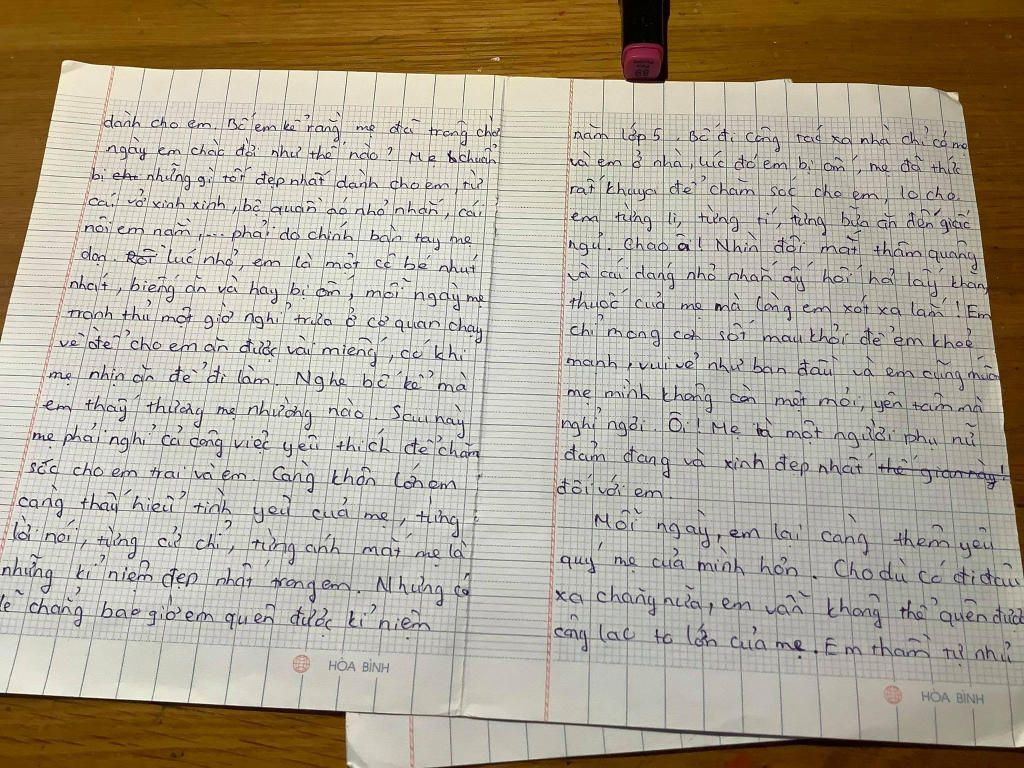 dành cho em. Bố em kể rằng mẹ đã trông chờ
ngày em chào đời như thế nào? Mẹ chuẩn
bị những gì tốt đẹp nhất dành cho em, từ
cái vỏ xinh xinh, bộ quần áo nhỏ nhắn, cái
nôi em nằm,... phải do chính bàn tay mẹ
dọn. Lúc nhỏ, em là một cô bé nhút
nhát, biếng ăn và hay bị ốm, mỗi ngày mẹ
tranh thủ một giờ nghỉ trưa ở cơ quan chạy
về để cho em ăn được vài miếng, có khi
mẹ nhịn ăn để đi làm. Nghe bố kể mà
em thấy thương mẹ nhường nào. Sau này
mẹ phải nghỉ cả công việc yêu thích để chăm
sóc cho em trai và em. Càng khôn lớn em
càng thấu hiểu tình yêu của mẹ, từng
lời nói, từng cử chỉ, từng ánh mắt mẹ là
những kỉ niệm đẹp nhất trong em. Nhưng có
lẽ chẳng bao giờ em quên được kỉ niệm
năm lớp 5. Bố đi công tác xa nhà chỉ có mẹ
và em ở nhà, lúc đó em bị ốm, mẹ đã thức
rất khuya để chăm sóc cho em, lo cho
em từng li, từng tí, từng bữa ăn đến giấc
ngủ. Chao ôi! Nhìn đôi mắt thâm quầng
và cái dáng nhỏ nhắn ấy hối hả lấy khăn,
thuốc của mẹ mà lòng em xót xa lắm! Em
chỉ mong cơn sốt mau khỏi để em khoẻ
mạnh, vui vẻ như ban đầu và em cũng muốn
mẹ mình không còn mệt mỏi, yên tâm mà
nghỉ ngơi. Ôi! Mẹ là một người phụ nữ
đảm đang và xinh đẹp nhất thế gian này!
đối với em.
Mỗi ngày, em lại càng thêm yêu
quý mẹ của mình hơn. Cho dù có đi đâu
xa chăng nữa, em vẫn không thể quên được
công lao to lớn của mẹ. Em thầm tự nhủ
HÒA BÌNH
HÒA BÌNH